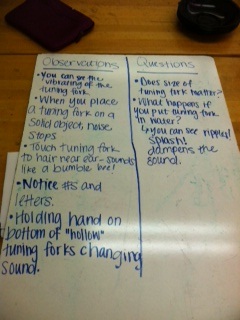 Observations
• You can see the
vibrating of the
tuning fork
• When you place
a tuning fork on a
solid object, noise
stops
• Touch tuning fork
to hair near ear - sounds
like a bumble bee!
• Notice #s and
letters.
• Holding hand on
bottom of "hollow"
tuning forks changing
sound.
Questions
• Does size of
tuning fork matter?
• What happens if
you put tuning fork
in water?
↳ you can see ripples!
splash!
dampens the
sound.